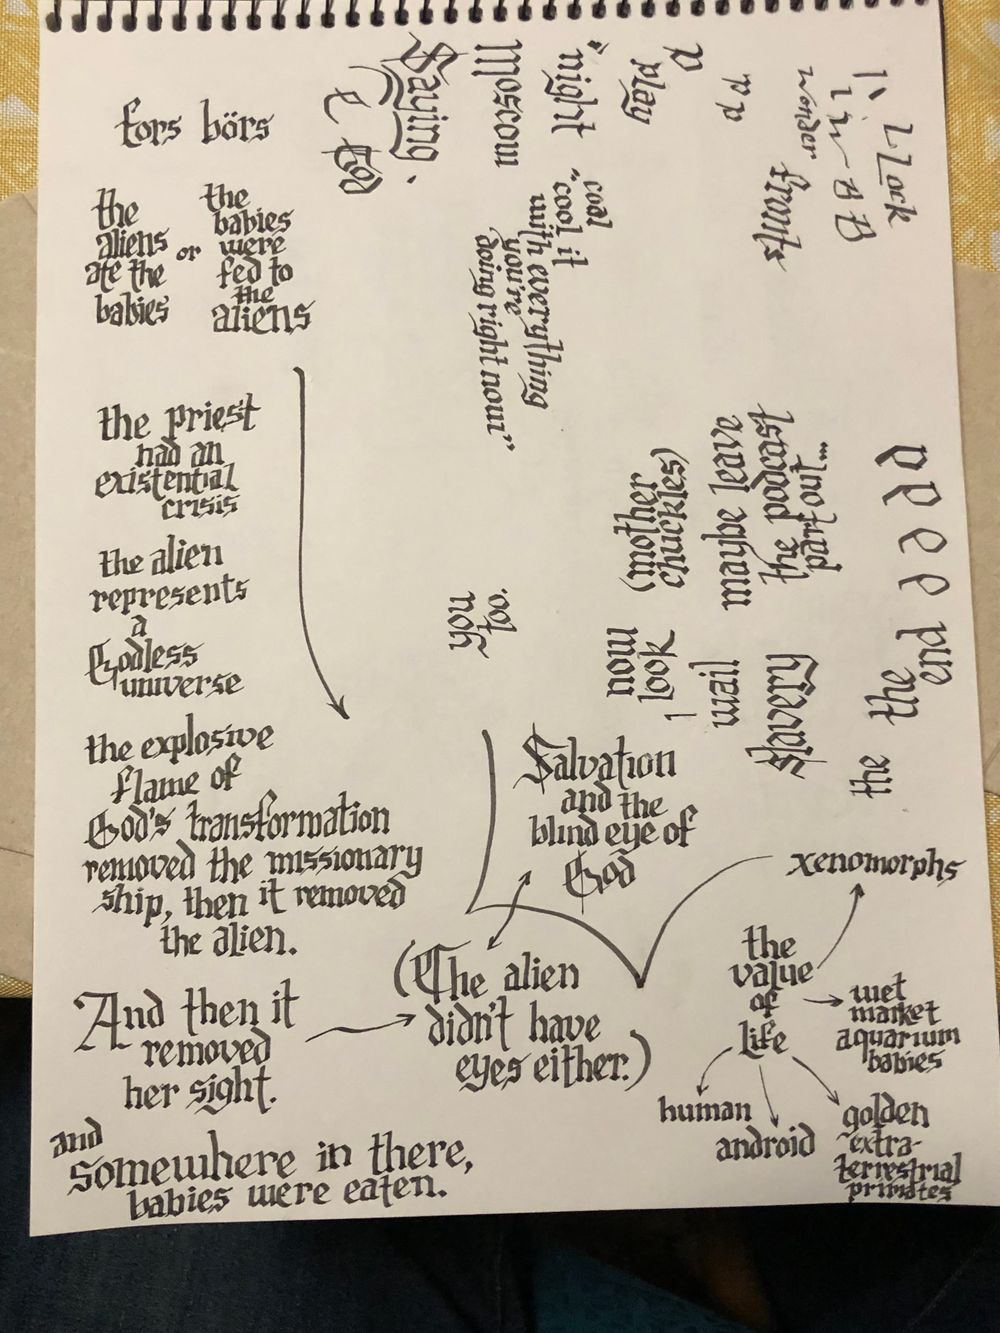 fors börs
the
aliens
ate the
babies
or
the
babies
were
fed to
the
aliens
the priest
had an
existential
crisis
the alien
represents
a
Godless
universe
the explosive
flame of
God's transformation
removed the missionary
ship, then it removed
the alien.
And then it
removed
her sight.
and
somewhere in there,
babies were eaten.
(The alien
didn't have
eyes either.)
Salvation
and the
blind eye of
God
the
value
of
life
xenomorphs
wet
market
aquarium
babies
golden
extra-
terrestrial
primates
android
human
wonder
fronts
a
play
"night
Moscow
Saying.
cool
"cool it
with everything
you're
doing right now"
maybe leave
the podcast
part out...
(mother
chuckles)
you
too.
now
look
I
wail
Slavery
the
the
end
a d d d